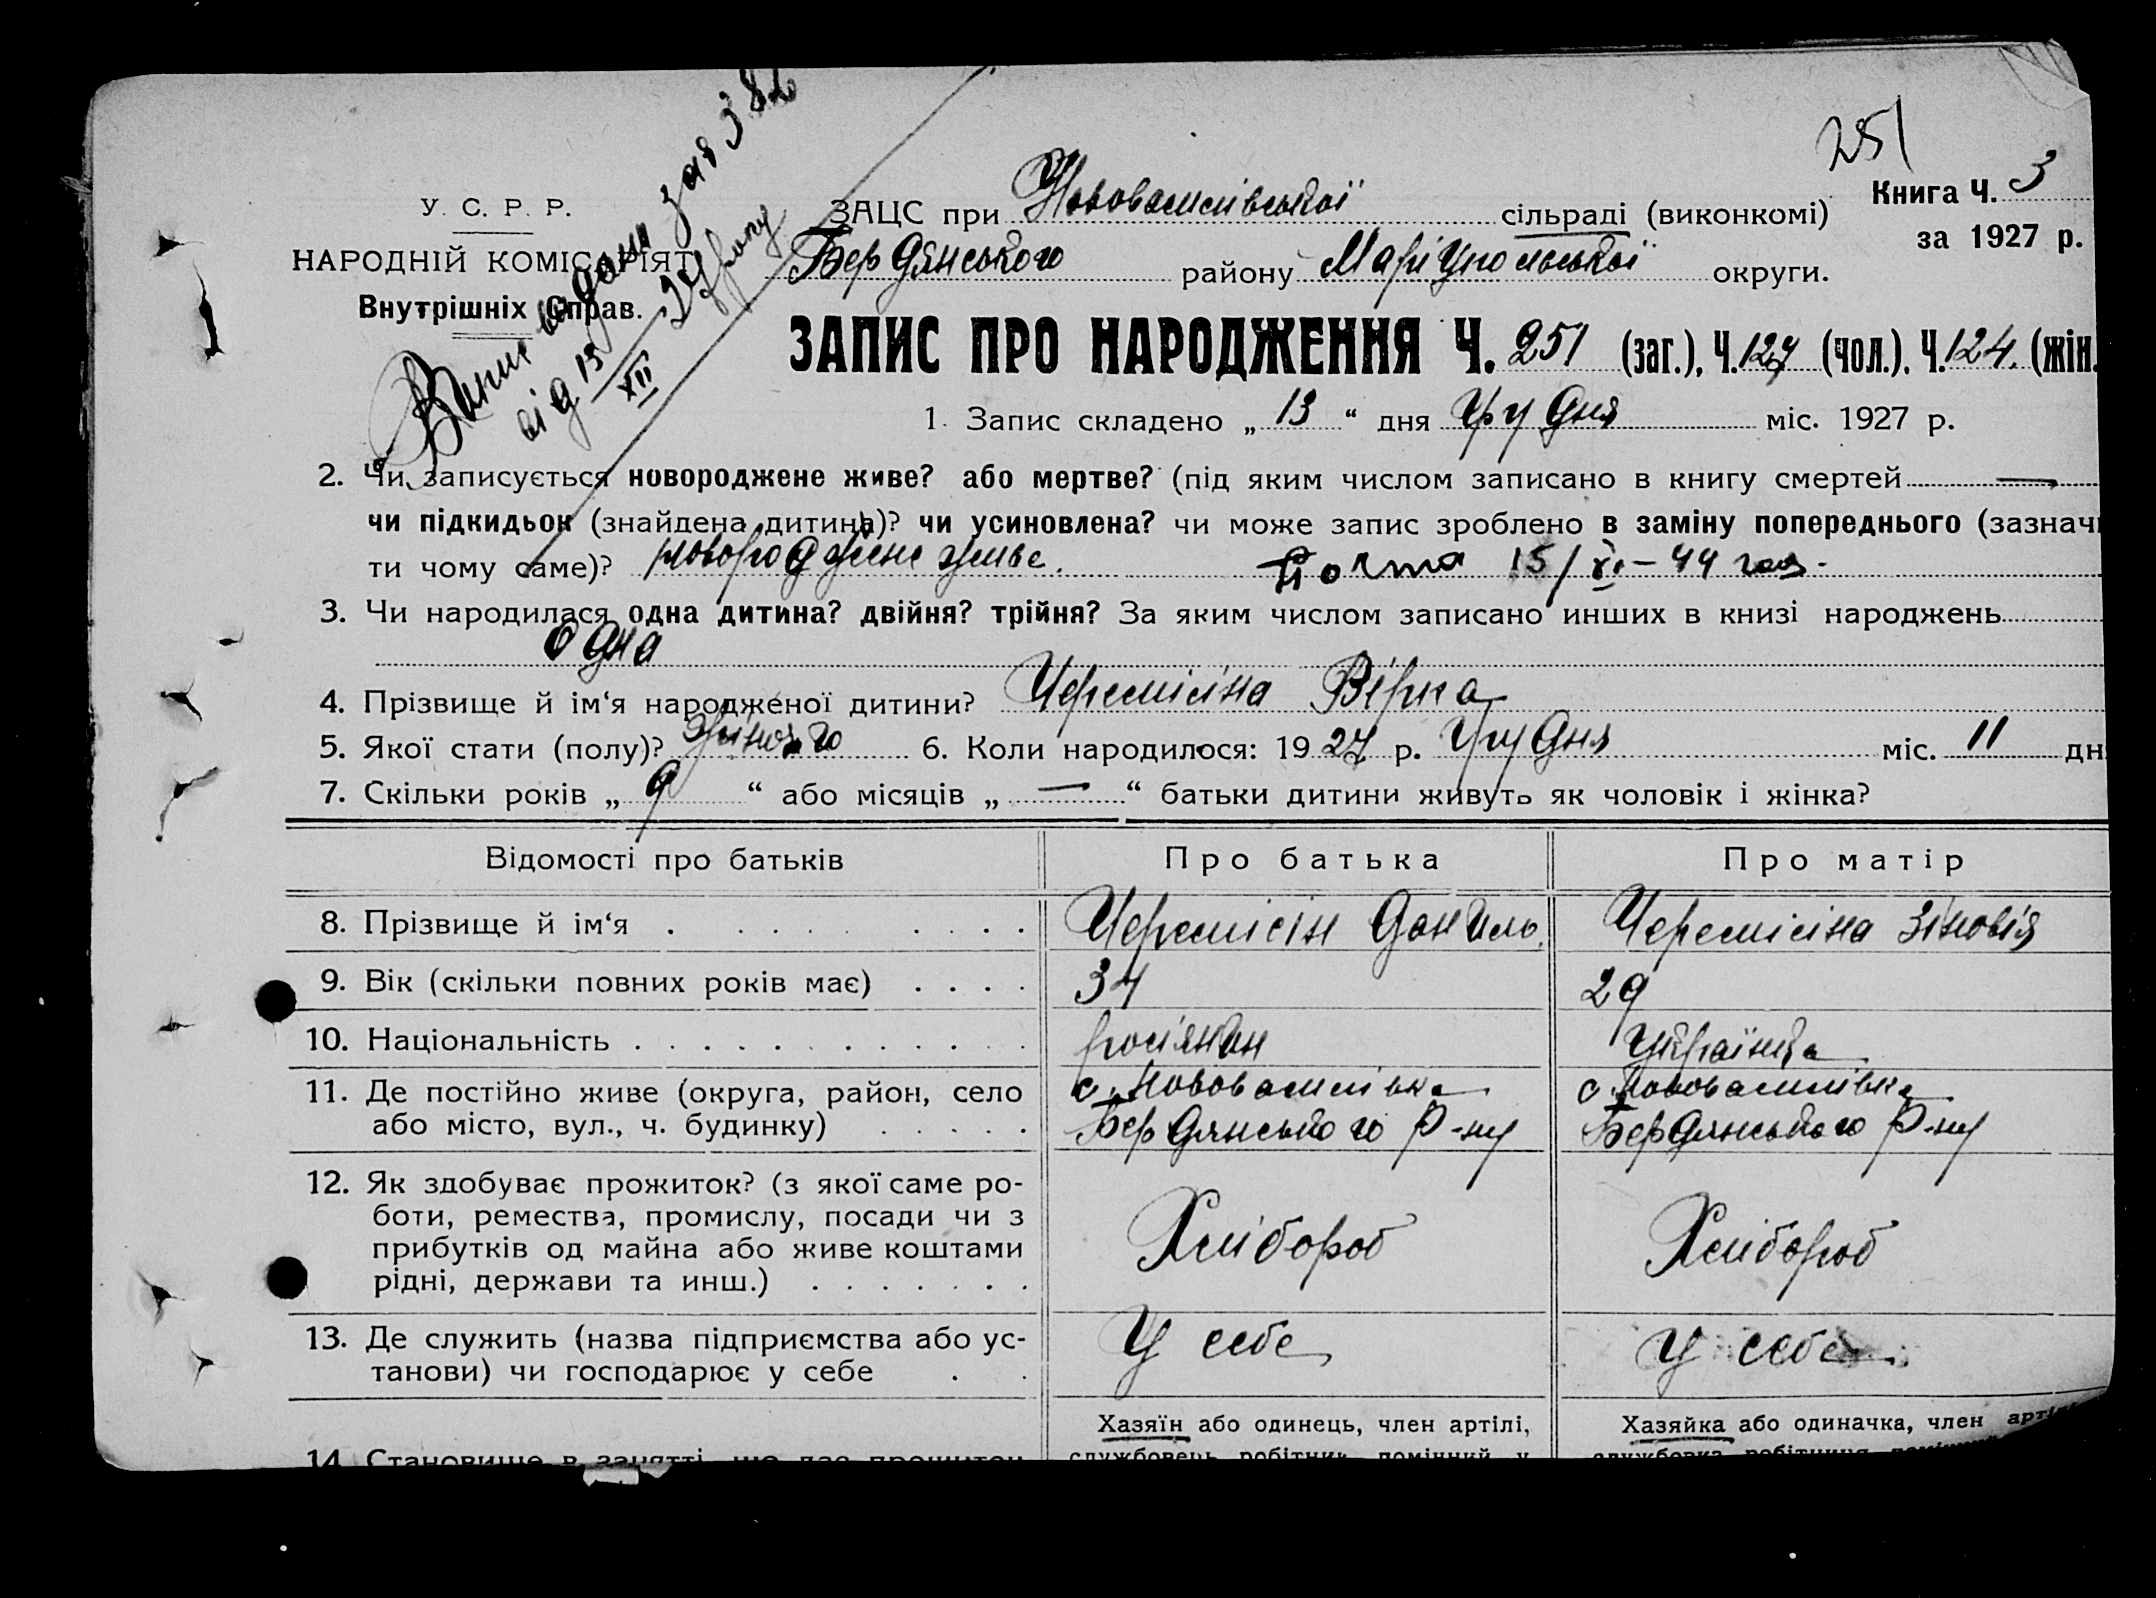 251
Книга Ч. 3
за 1927 р.
У. С. Р. Р.
НАРОДНІЙ КОМІСАРІЯТ
Внутрішніх Справ.
видано за № 382
від 13/XII 27 року
ЗАЦС при Нововасилівської сільраді (виконкомі)
Бердянського району Маріупольської округи.
ЗАПИС ПРО НАРОДЖЕННЯ Ч. 251 (заг.), Ч. 127 (чол.), Ч. 124. (жін.
1. Запис складено „ 13 “ дня Грудня міс. 1927 р.
2. Чи записується новороджене живе? або мертве? (під яким числом записано в книгу смертей —
чи підкидьок (знайдена дитина)? чи усиновлена? чи може запис зроблено в заміну попереднього (зазначи
ти чому саме)? новороджене живе. 15/XI–44
3. Чи народилася одна дитина? двійня? трійня? За яким числом записано инших в книзі народжень
одна
4. Прізвище й ім‘я народженої дитини? Черемісіна Вірка
5. Якої стати (полу)? жіного 6. Коли народилося: 1927 р. Грудня міс. 11 дн
7. Скільки років „ 9 “ або місяців „ — “ батьки дитини живуть як чоловік і жінка?
Відомості про батьків Про батька Про матір
8. Прізвище й ім‘я Черемісін Данило Черемісіна Зіновія
9. Вік (скільки повних років має) 34 29
10. Національність росіянин Українка
11. Де постійно живе (округа, район, село с. Нововасилівка с. Нововасилівка
або місто, вул., ч. будинку) Бердянського р-ну Бердянського р-ну
12. Як здобуває прожиток? (з якої саме ро-
боти, ремества, промислу, посади чи з Хлібороб Хлібороб
прибутків од майна або живе коштами
рідні, держави та инш.)
13. Де служить (назва підприємства або ус- У себе У себе
танови) чи господарює у себе
Хазяїн або одинець, член артілі, Хазяйка або одиначка, член арті
14. Становище в занятті, що дає прожиток службовець, робітник, помічний у